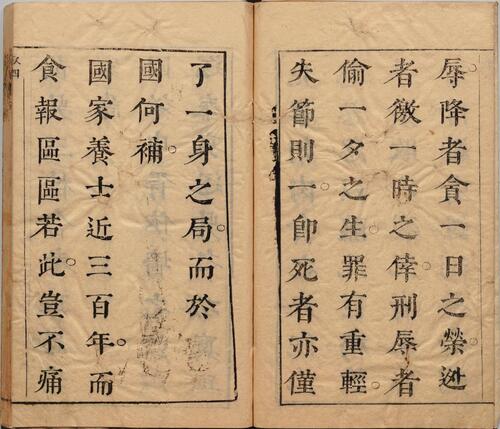 辱降者貪一日之榮迯
者徼一時之倖刑辱者
偷一夕之生罪有重輕
失節則一卽死者亦僅
了一身之局而於
國何補
國家養士近三百年而
食報區區若此豈不痛